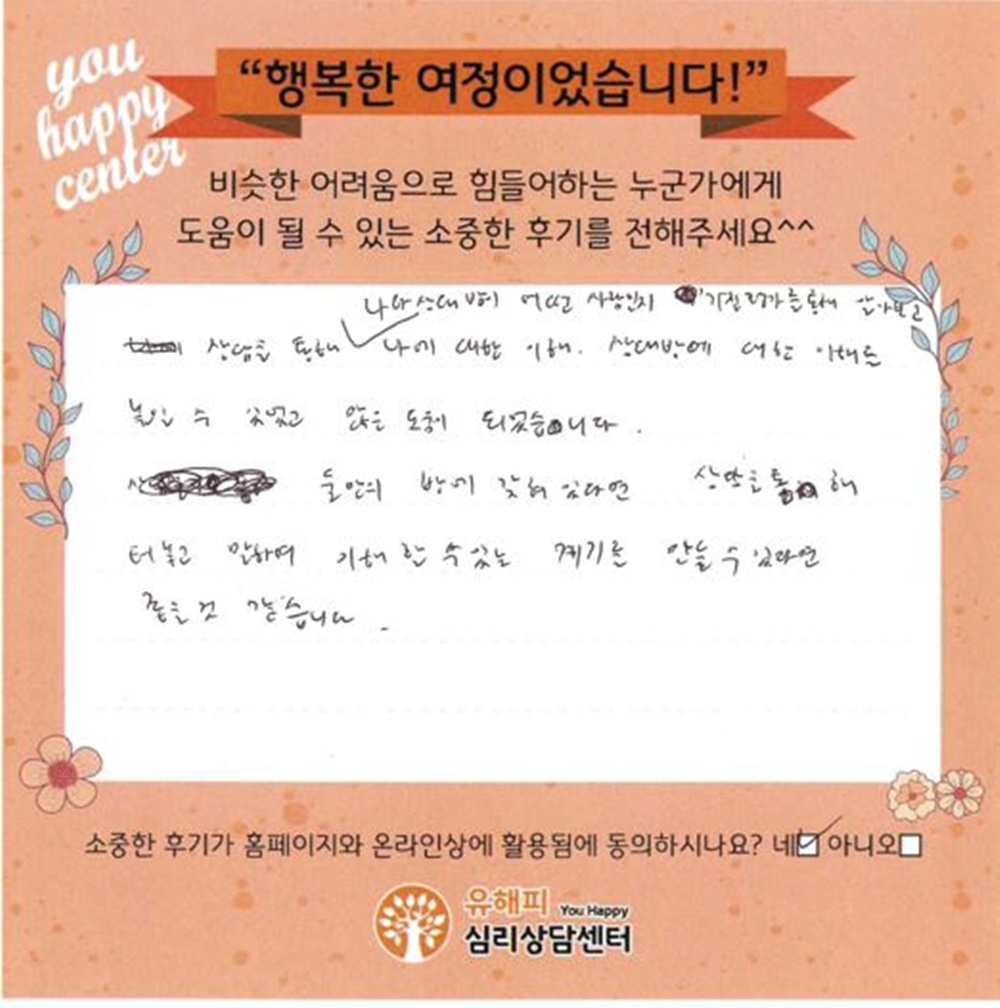 you
happy
center
“행복한 여정이었습니다!”
비슷한 어려움으로 힘들어하는 누군가에게
도움이 될 수 있는 소중한 후기를 전해주세요^^
나와 상대방이 어떤 사람인지 기질검사를 통해 알아보고
상담을 통해 나에 대한 이해. 상대방에 대한 이해를
높일 수 있었고 많은 도움이 되었습니다.
둘만의 방에 갖혀 있다면 상담을 통해
터놓고 말하며 이해 할 수 있는 계기를 만들 수 있다면
좋을 것 같습니다.
소중한 후기가 홈페이지와 온라인상에 활용됨에 동의하시나요? 네 아니오
유해피 You Happy
심리상담센터